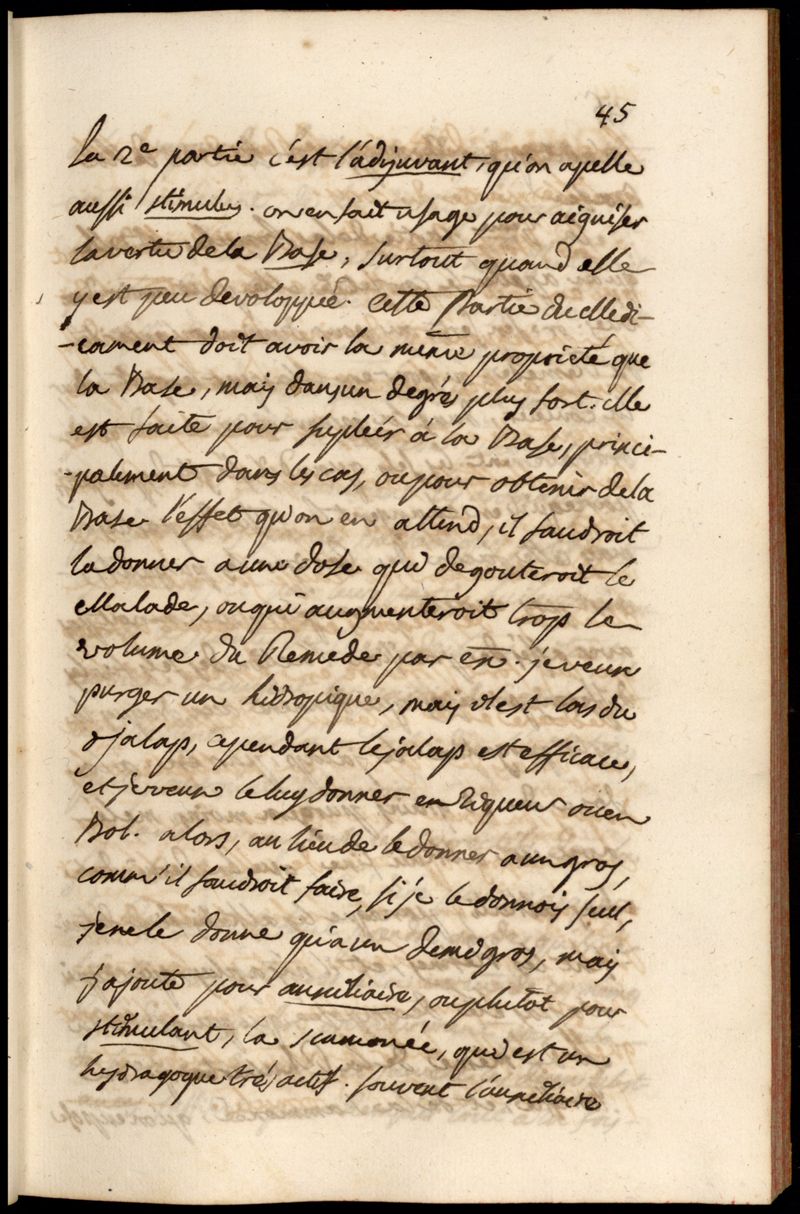 45
la 2e partie c'est l'adijuvant, qu'on apelle
aussi stimulus. on en fait usage pour aiguiser
la vertu de la Base, surtout quand elle
y est peu devoloppée. cette Partie du Medi-
-cament doit avoir la même proprieté que
la Base, mais dans un degrés plus fort. elle
est faite pour supleér á la Base, princi-
-palement dans les cas, ou pour obtenir de la
Base l'effet qu'on en attend, il faudroit
la donner a une dose qui degouteroit le
Malade, ou qui augmenteroit trop le
volume du Remede par en. je veux
purger un hidropique, mais il est las du
jalap, cependant le jalap est efficace,
et je veux le luy donner en ou en
Bol. alors, au lieu de le donner a un gros,
comm'il faudroit faire, si je le donnois seul,
je ne le donne qu'a un demi gros, mais
j'ajoute pour auxiliaire, ou plutot pour
stimulant, la scamonée, qui est un
hydragogue trés actif. souvent l'auxiliaire